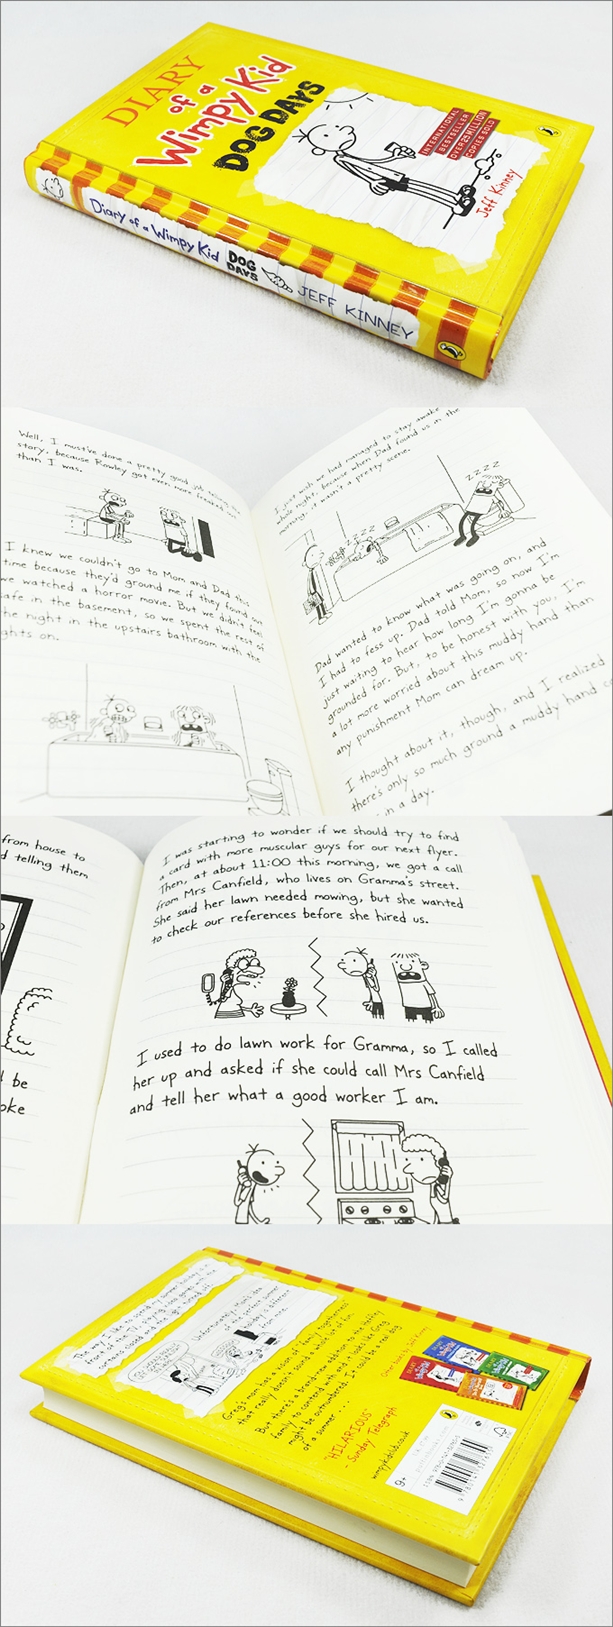 DIARY
of a
Wimpy Kid
DOG DAYS
INTERNATIONAL
BESTSELLER
OVER 25 MILLION
COPIES SOLD
Jeff Kinney
Diary of a Wimpy Kid
DOG
DAYS
JEFF KINNEY
Well, I must've done a pretty good job telling the
story, because Rowley got even more freaked
than I was.
I knew we couldn't go to Mom and Dad this
time because they'd ground me if they found out
we watched a horror movie. But we didn't feel
safe in the basement, so we spent the rest of
the night in the upstairs bathroom with the
ghts on.
I just wish we had managed to stay awake
whole night, because when Dad found us in the
morning, it wasn't a pretty scene.
ZZZZ
ZZZZ
Dad wanted to know what was going on, and
I had to fess up. Dad told Mom, so now I'm
just waiting to hear how long I'm gonna be
grounded for. But, to be honest with you, I'm
a lot more worried about this muddy hand than
any punishment Mom can dream up.
I thought about it, though, and I realized
there's only so much ground a muddy hand
in a day.
from house to
d telling them
d be
oke
I was starting to wonder if we should try to find
a card with more muscular guys for our next flyer.
Then, at about 11:00 this morning, we got a call
from Mrs Canfield, who lives on Gramma's street.
She said her lawn needed mowing, but she wanted
to check our references before she hired us.
I used to do lawn work for Gramma, so I called
her up and asked if she could call Mrs Canfield
and tell her what a good worker I am.
The way I like to spend my summer holiday is in
front of the TV, playing video games with the
curtains closed and the light turned off.
Unfortunately, Mom's idea
of the perfect summer
holiday is different
from mine.
Greg's mom has a vision of 'family togetherness'
that really doesn't sound a whole lot of fun.
But there's a brand-new addition to the Heffley
family to contend with and it looks like Greg
might be outnumbered. It could be a real dog
of a summer . . .
"HILARIOUS"
- Sunday Telegraph
wimpykidclub.co.uk
9+